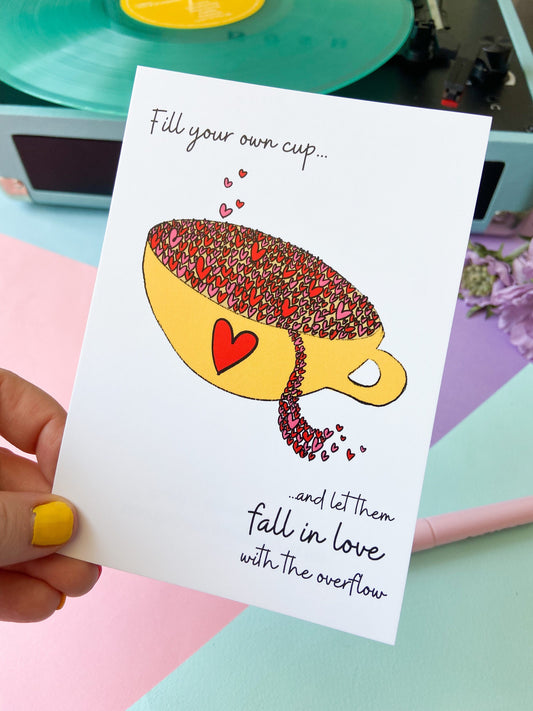 Fill your own cup...
...and let them
fall in love
with the overflow